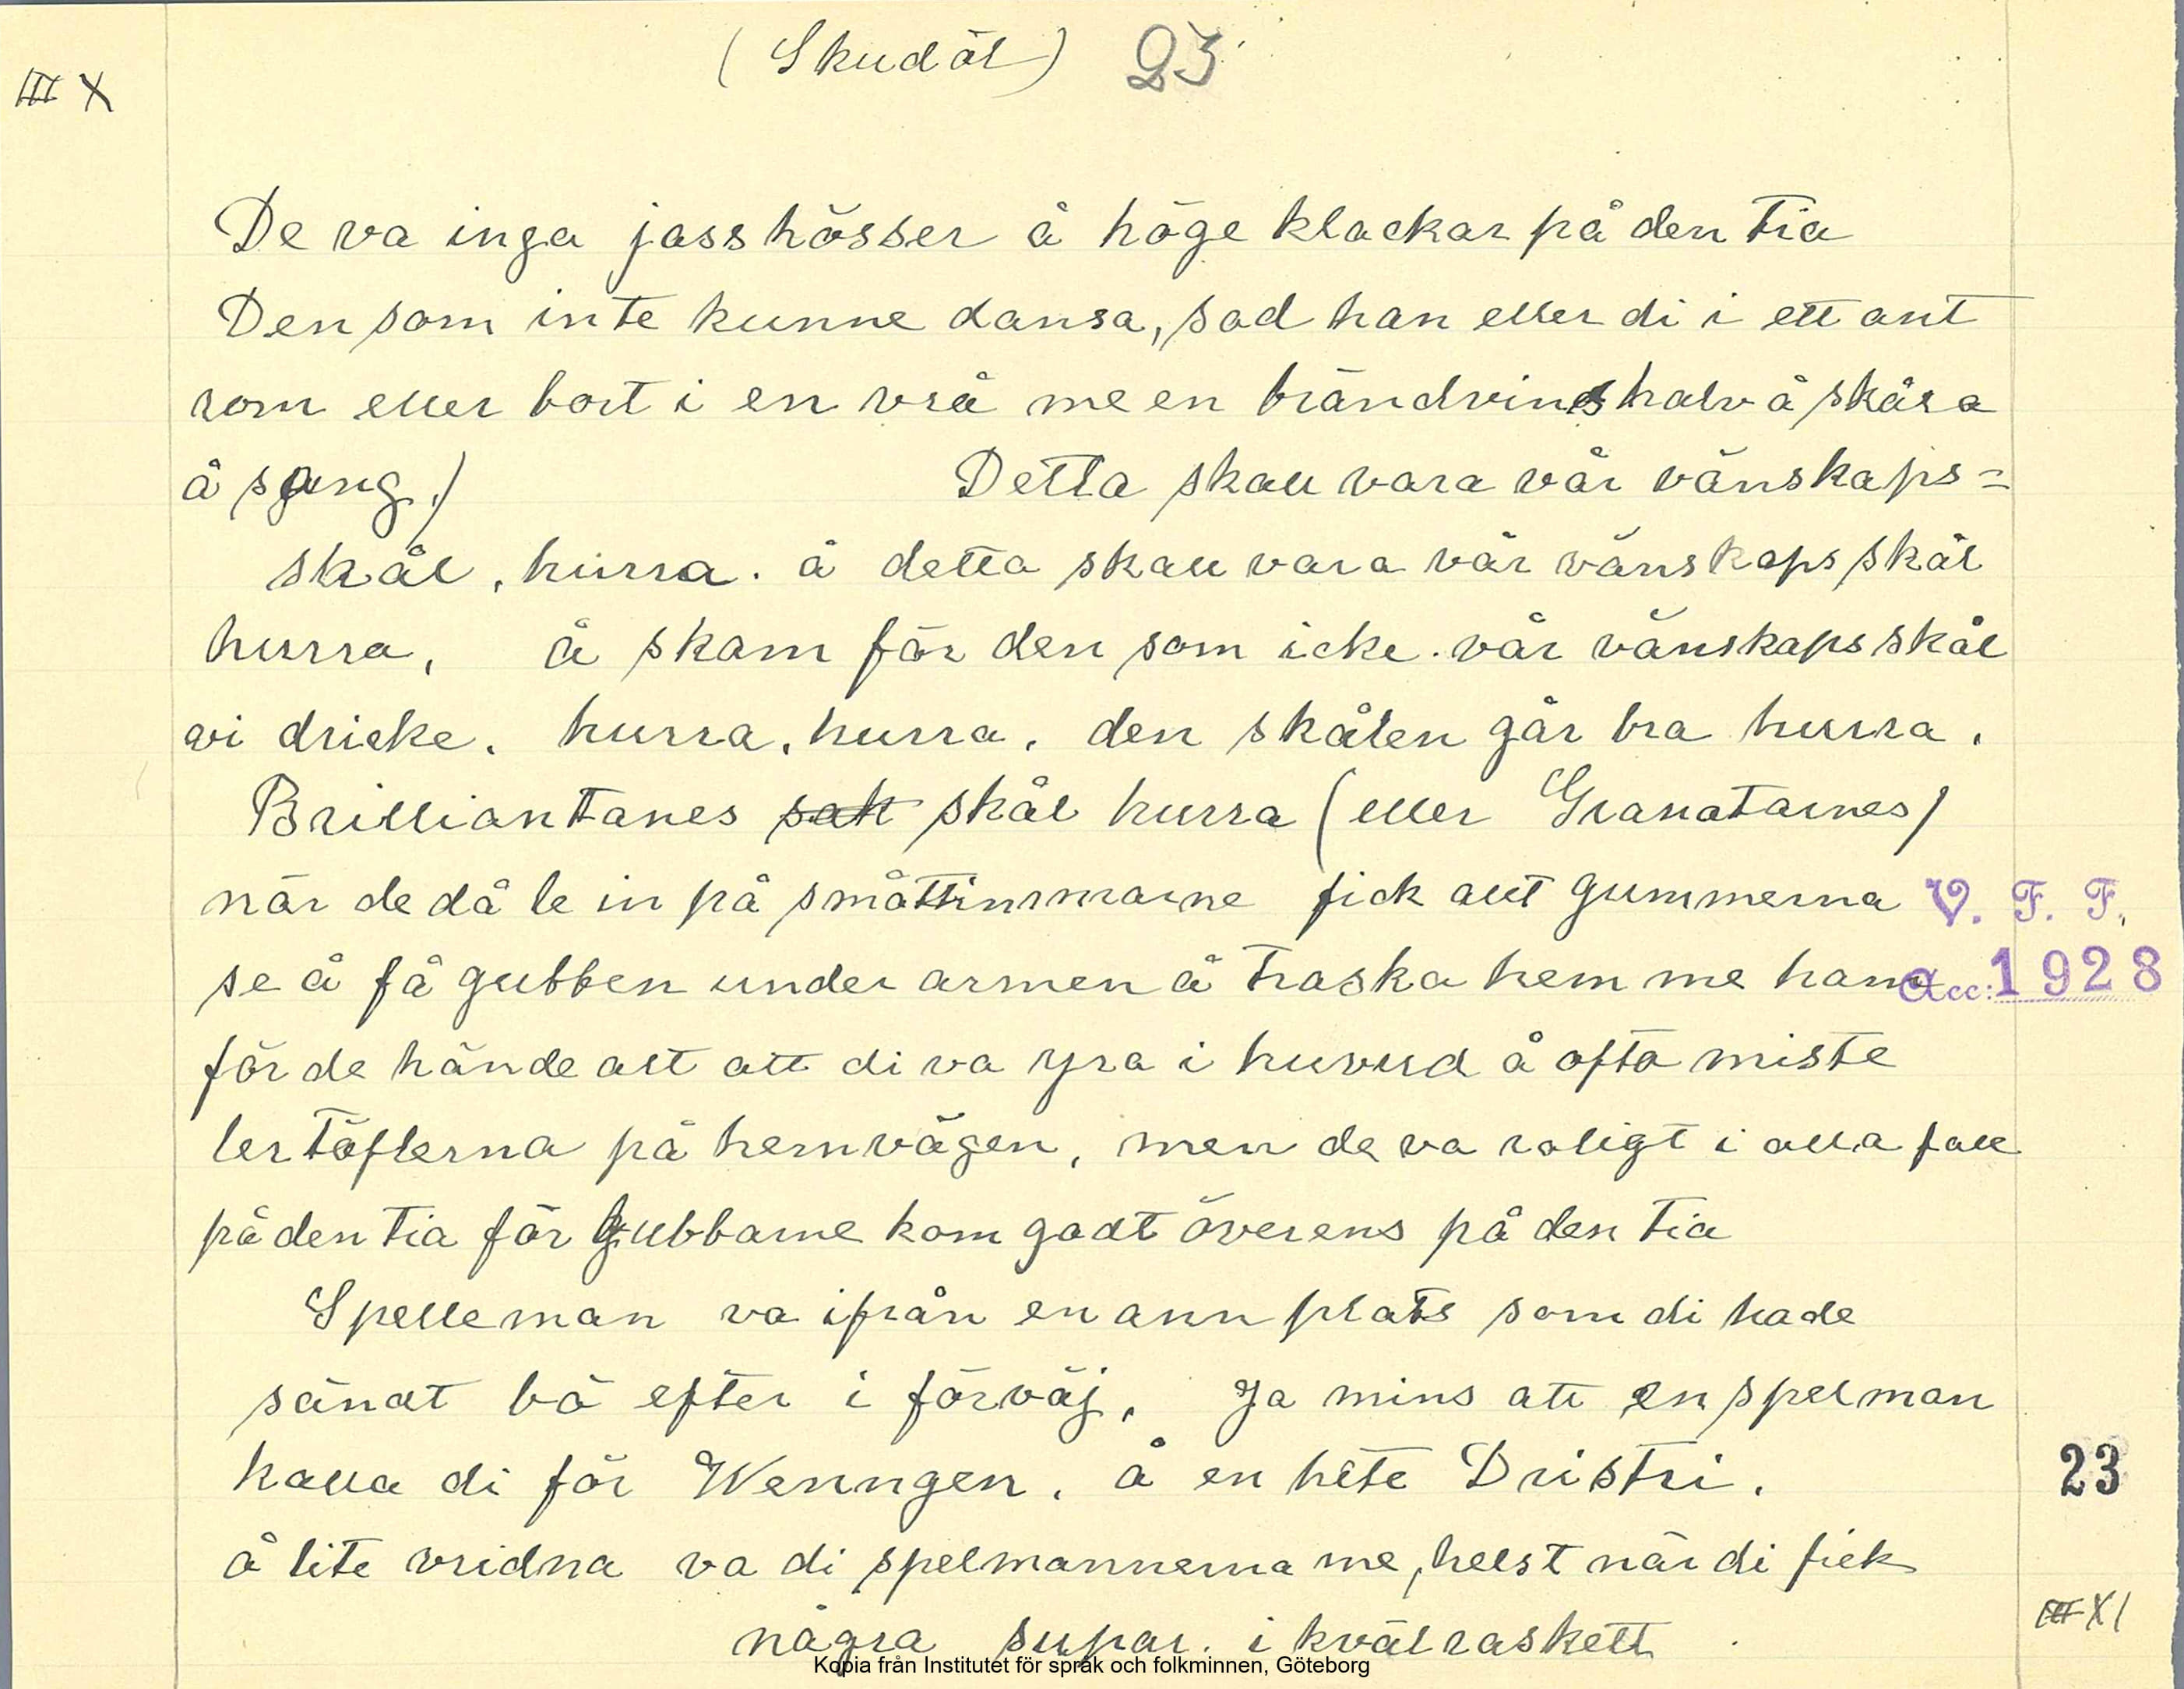 (Skudöl) 23
III X
De va inga jasshösser å höge klackar på den tia
Den som inte kunne dansa, sad han eller di i ett ant
rom eller bort i en vrå me en brändvinshalv å skåra
å sang.) Detta skall vara vår vänskaps=
skål, hurra. å detta skall vara vår vänskapsskål
hurra, å skam för den som icke. vår vänskapsskål
vi dricke. hurra, hurra, den skålen går bra hurra.
Brilliantanes satt skål hurra (eller Granatarnes)
när de då le in på småttimmarne fick alt gummerna
V. F. F.
se å få gubben under armen å traska hem me hans
Acc: 1928
för de hände alt att di va yra i huvud å ofta miste
lertöflerna på hemvägen, men de va roligt i alla fall
på den tia för gubbarne kom godt överens på den tia
Spelleman va ifrån en ann plats som di hade
sändt bö efter i förväj. Ja mins att en spelman
kalla di för Wenngen. å en hete Dristri.
23
å lite vridna va di spelmannerna me, helst när di fick
III XI
några supar. i kvälraskett
Kopia från Institutet för språk och folkminnen, Göteborg